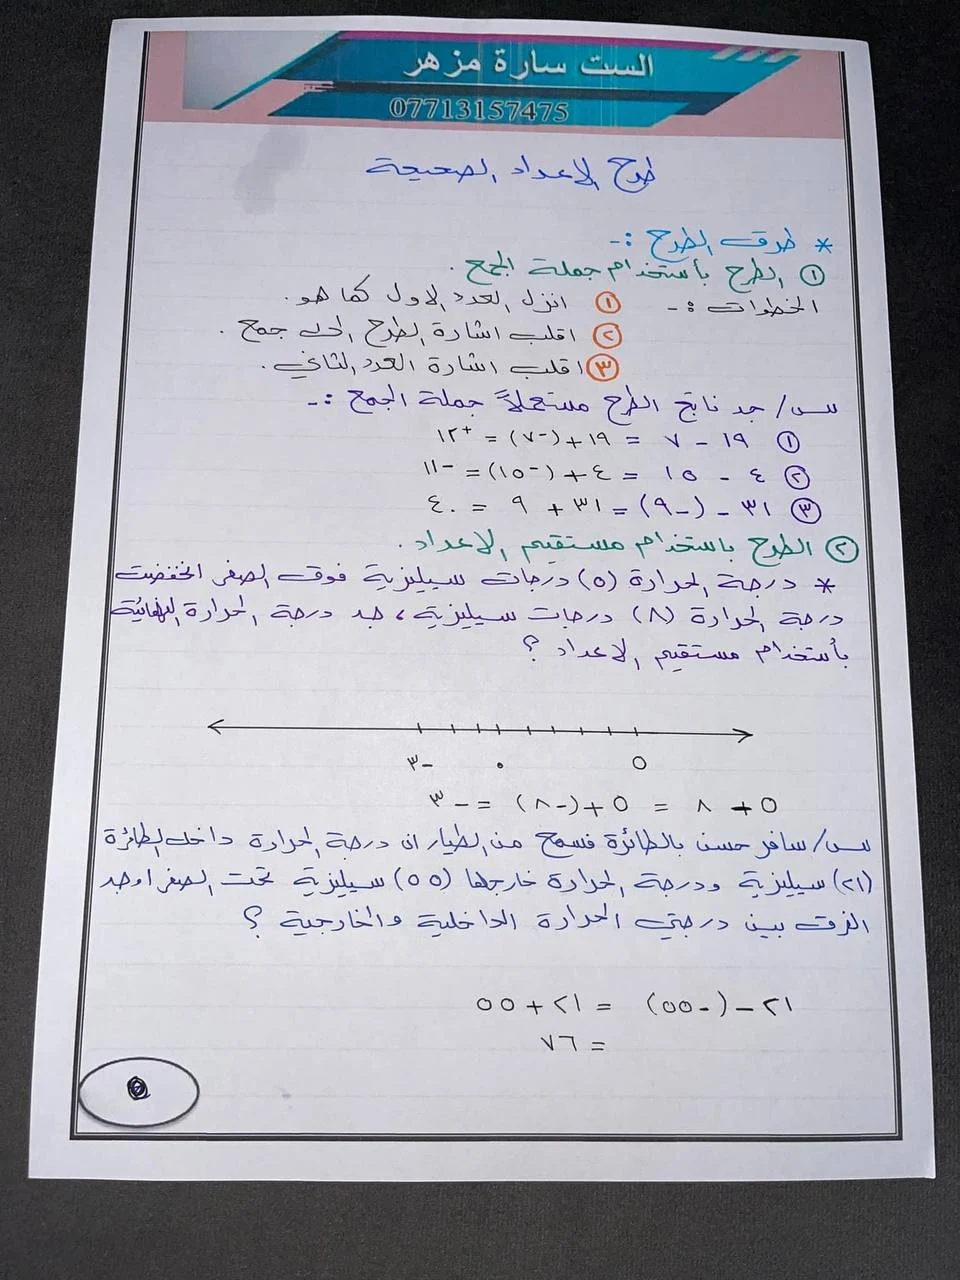 الست سارة مزهر
07713157475
طرح الاعداد الصحيحة
* طرق الطرح :-
① الطرح بأستخدام جملة الجمع .
الخطوات :- ① انزل العدد الاول كما هو .
② اقلب اشارة الطرح الى جمع .
③ اقلب اشارة العدد الثاني .
س/ جد ناتج الطرح مستعملاً جملة الجمع :-
① ١٩ - ٧ = ١٩ + (-٧) = +١٢
② ٤ - ١٥ = ٤ + (-١٥) = -١١
③ ٣١ - (-٩) = ٣١ + ٩ = ٤٠
② الطرح باستخدام مستقيم الاعداد .
* درجة الحرارة (٥) درجات سيليزية فوق الصفر انخفضت
درجة الحرارة (٨) درجات سيليزية ، جد درجة الحرارة النهائية
بأستخدام مستقيم الاعداد ؟
-٣ ٠ ٥
٥ + ٨ = ٥ + (-٨) = -٣
س/ سافر حسن بالطائرة فسمح من الطيار ان درجة الحرارة داخل الطائرة
(٢١) سيليزية ودرجة الحرارة خارجها (٥٥) سيليزية تحت الصفر اوجد
الفرق بين درجتي الحرارة الداخلية والخارجية ؟
٢١ - (-٥٥) = ٢١ + ٥٥
= ٧٦